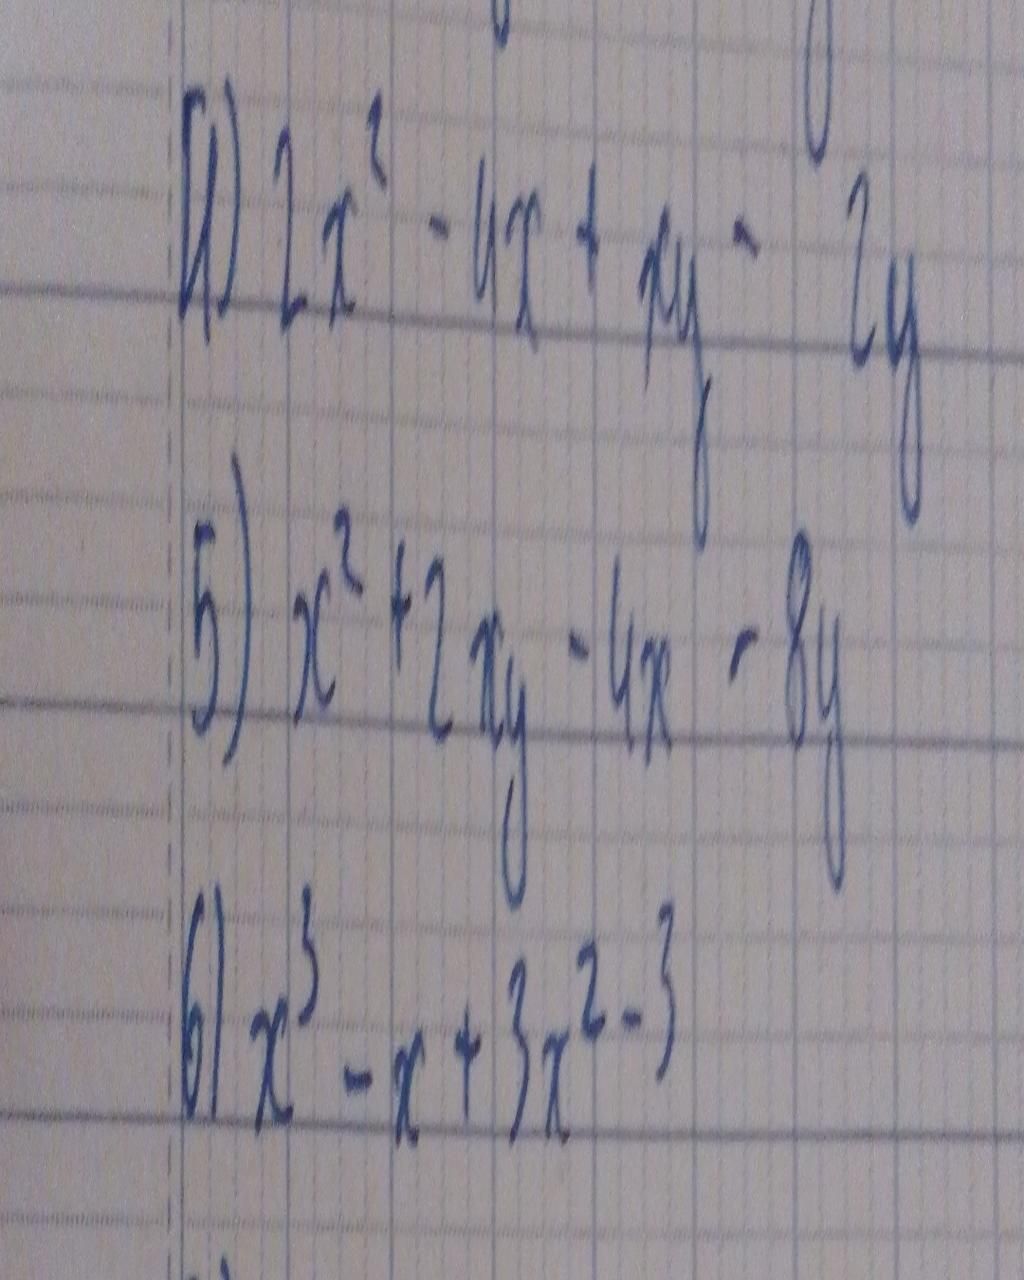 4) 2x² - 4x + xy - 2y
5) x² + 2xy - 4x - 8y
6) x³ - x + 3x² - 3